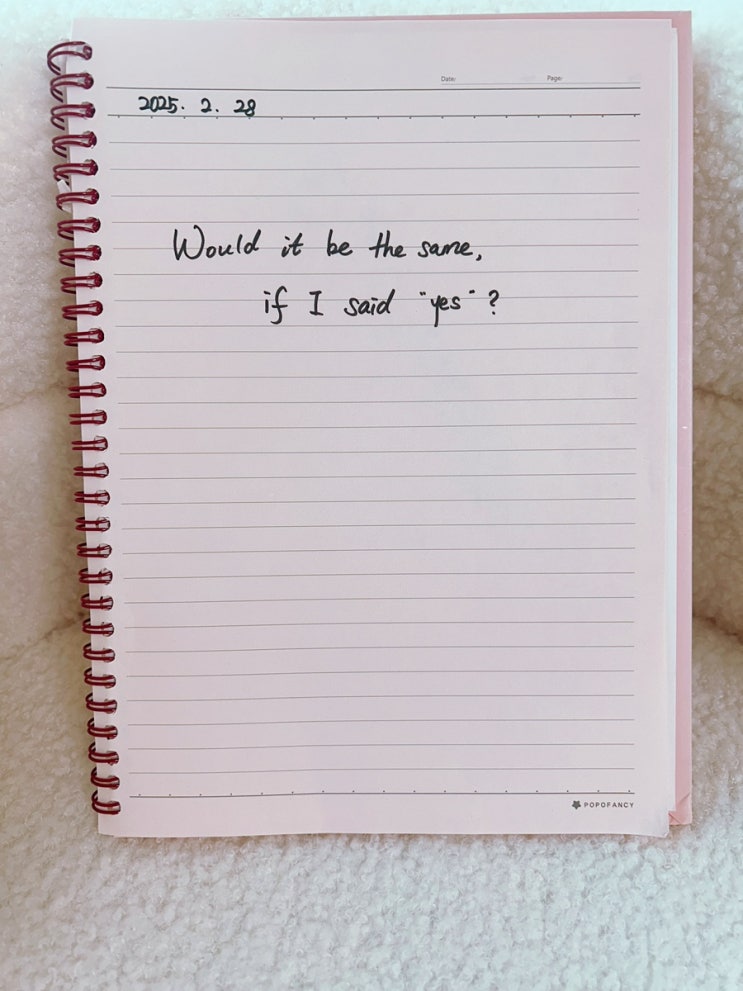 Date:
Page:
2025. 2. 28
Would it be the same,
if I said "yes"?
POPOFANCY